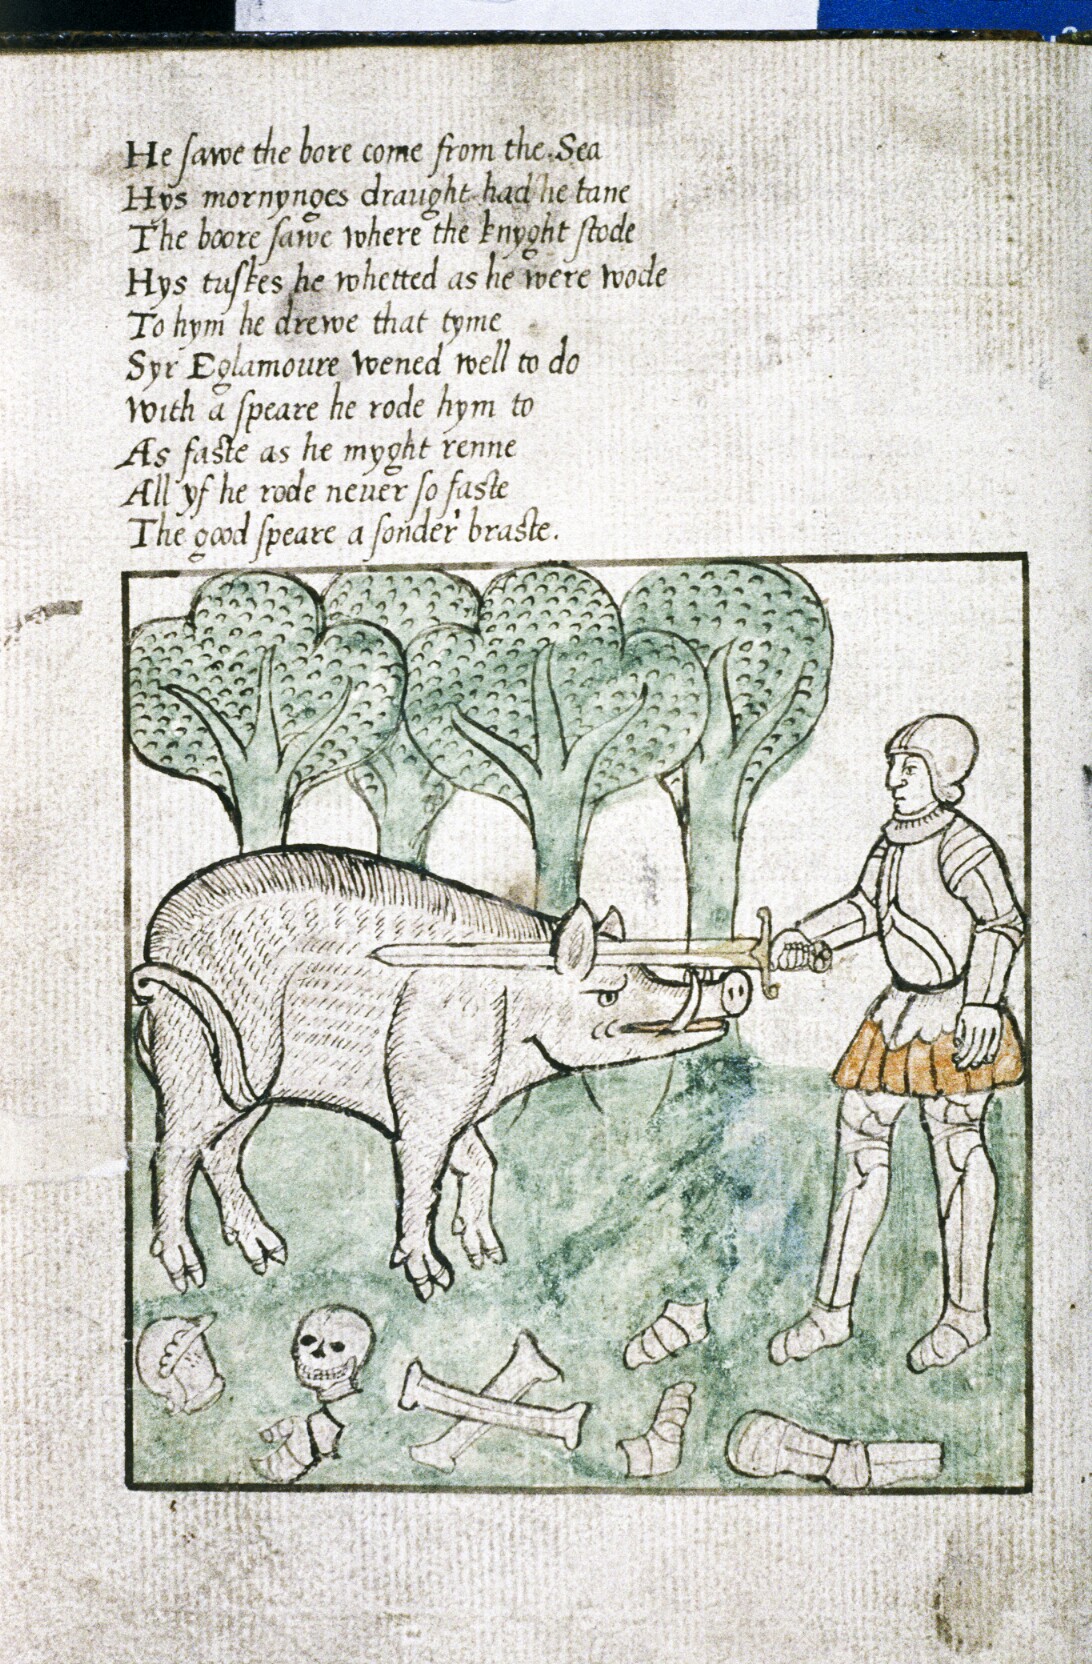 He ſawe the bore come from the Sea
Hys mornynges draught had he tane
The boore ſawe where the knyght ſtode
Hys tuſkes he whetted as he were wode
To hym he drewe that tyme
Syr Eglamoure wened well to do
With a ſpeare he rode hym to
As faſte as he myght renne
All yf he rode neuer ſo faſte
The good ſpeare a ſonder braſte.